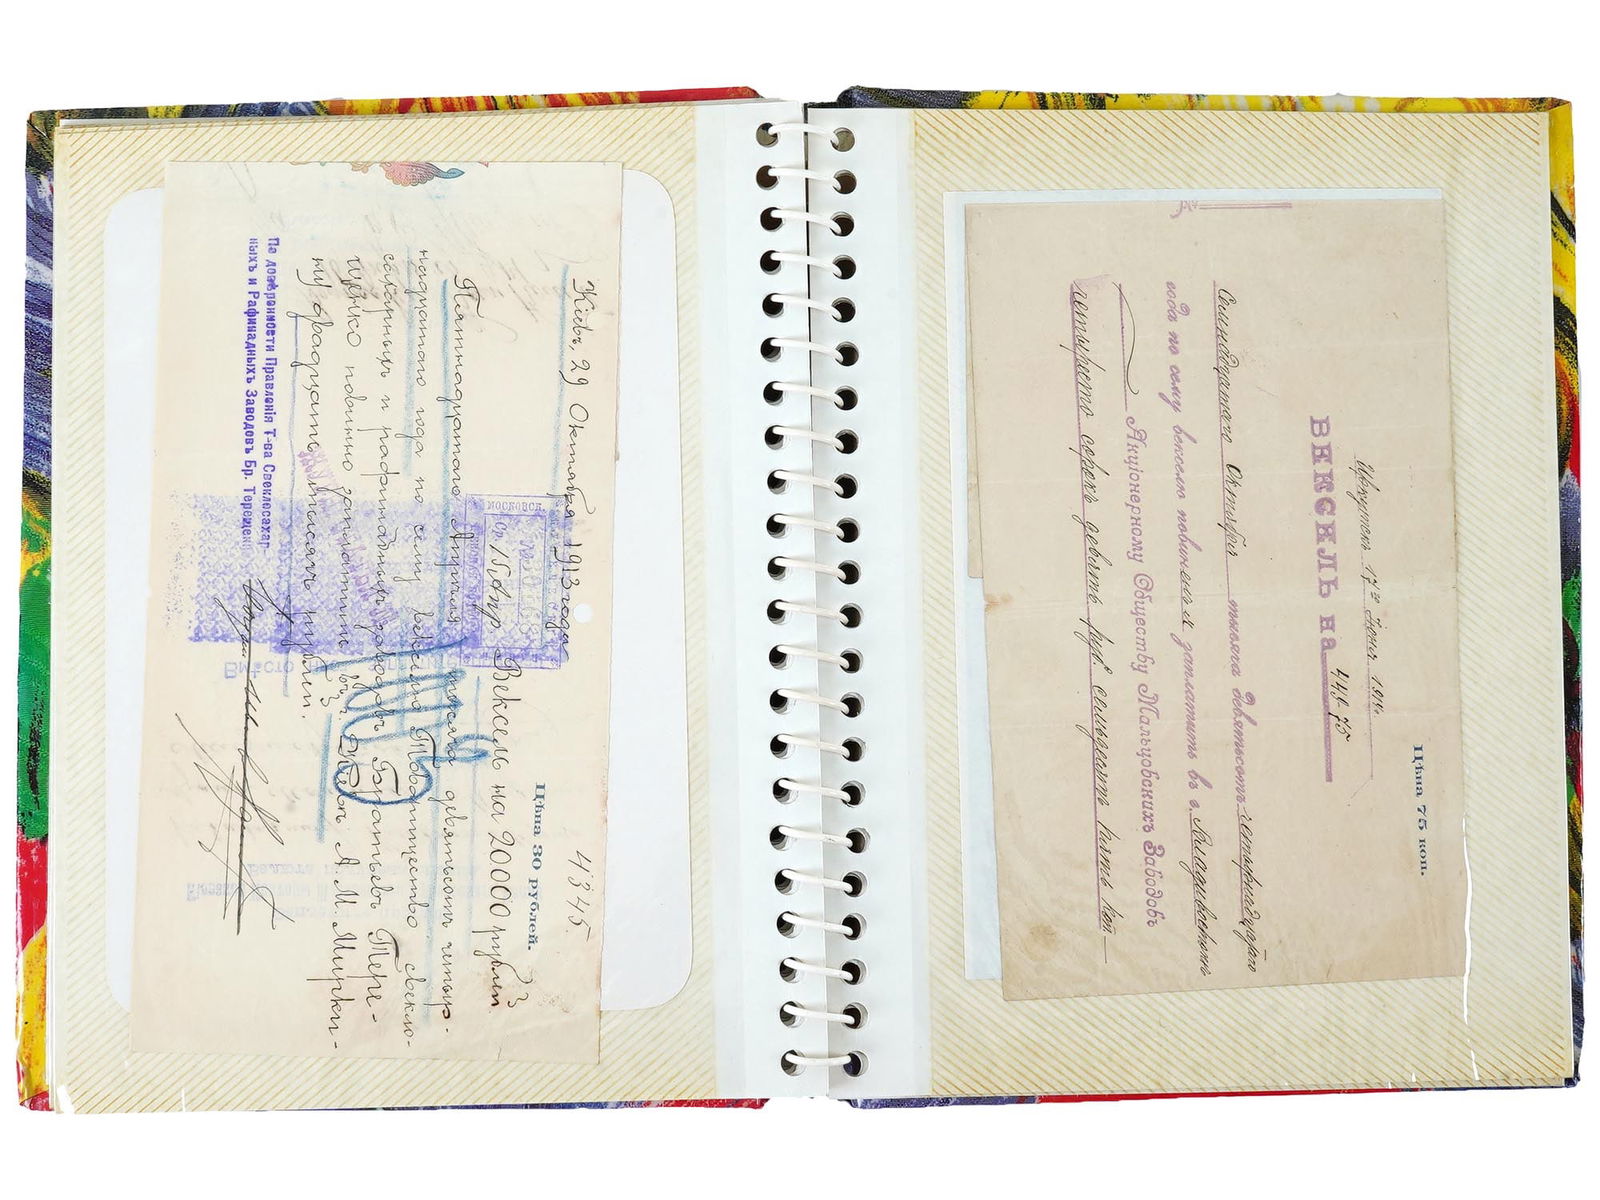 4345.
Кіевъ, 29 Октября 1913 года
Цѣна 30 рублей.
Вексель на 20000 рублей
Пятнадцатаго Апрѣля тысяча девятьсотъ четыр-
надцатаго года по сему векселю Товарищество свекло-
сахарныхъ и рафинадныхъ заводовъ Братьевъ Тере-
щенко повинно заплатить А. М. Мирки-
ну двадцать тысячъ рублей.
По довѣренности Правленія Т-ва Свеклосахар-
ныхъ и Рафинадныхъ Заводовъ Бр. Терещенко
МОСКОВСК.
Ср. 15 Апр.
Вмѣсто
Цѣна 75 коп.
Иркутскъ 17го Іюня 1914г.
ВЕКСЕЛЬ на 449 75
Семнадцатаго Октября тысяча девятьсотъ четырнадцатаго
года по сему векселю повинен заплатить въ г. Владивостокѣ
Акціонерному Обществу Мальцовскихъ Заводовъ
четыреста сорокъ девять руб. семьдесятъ пять коп